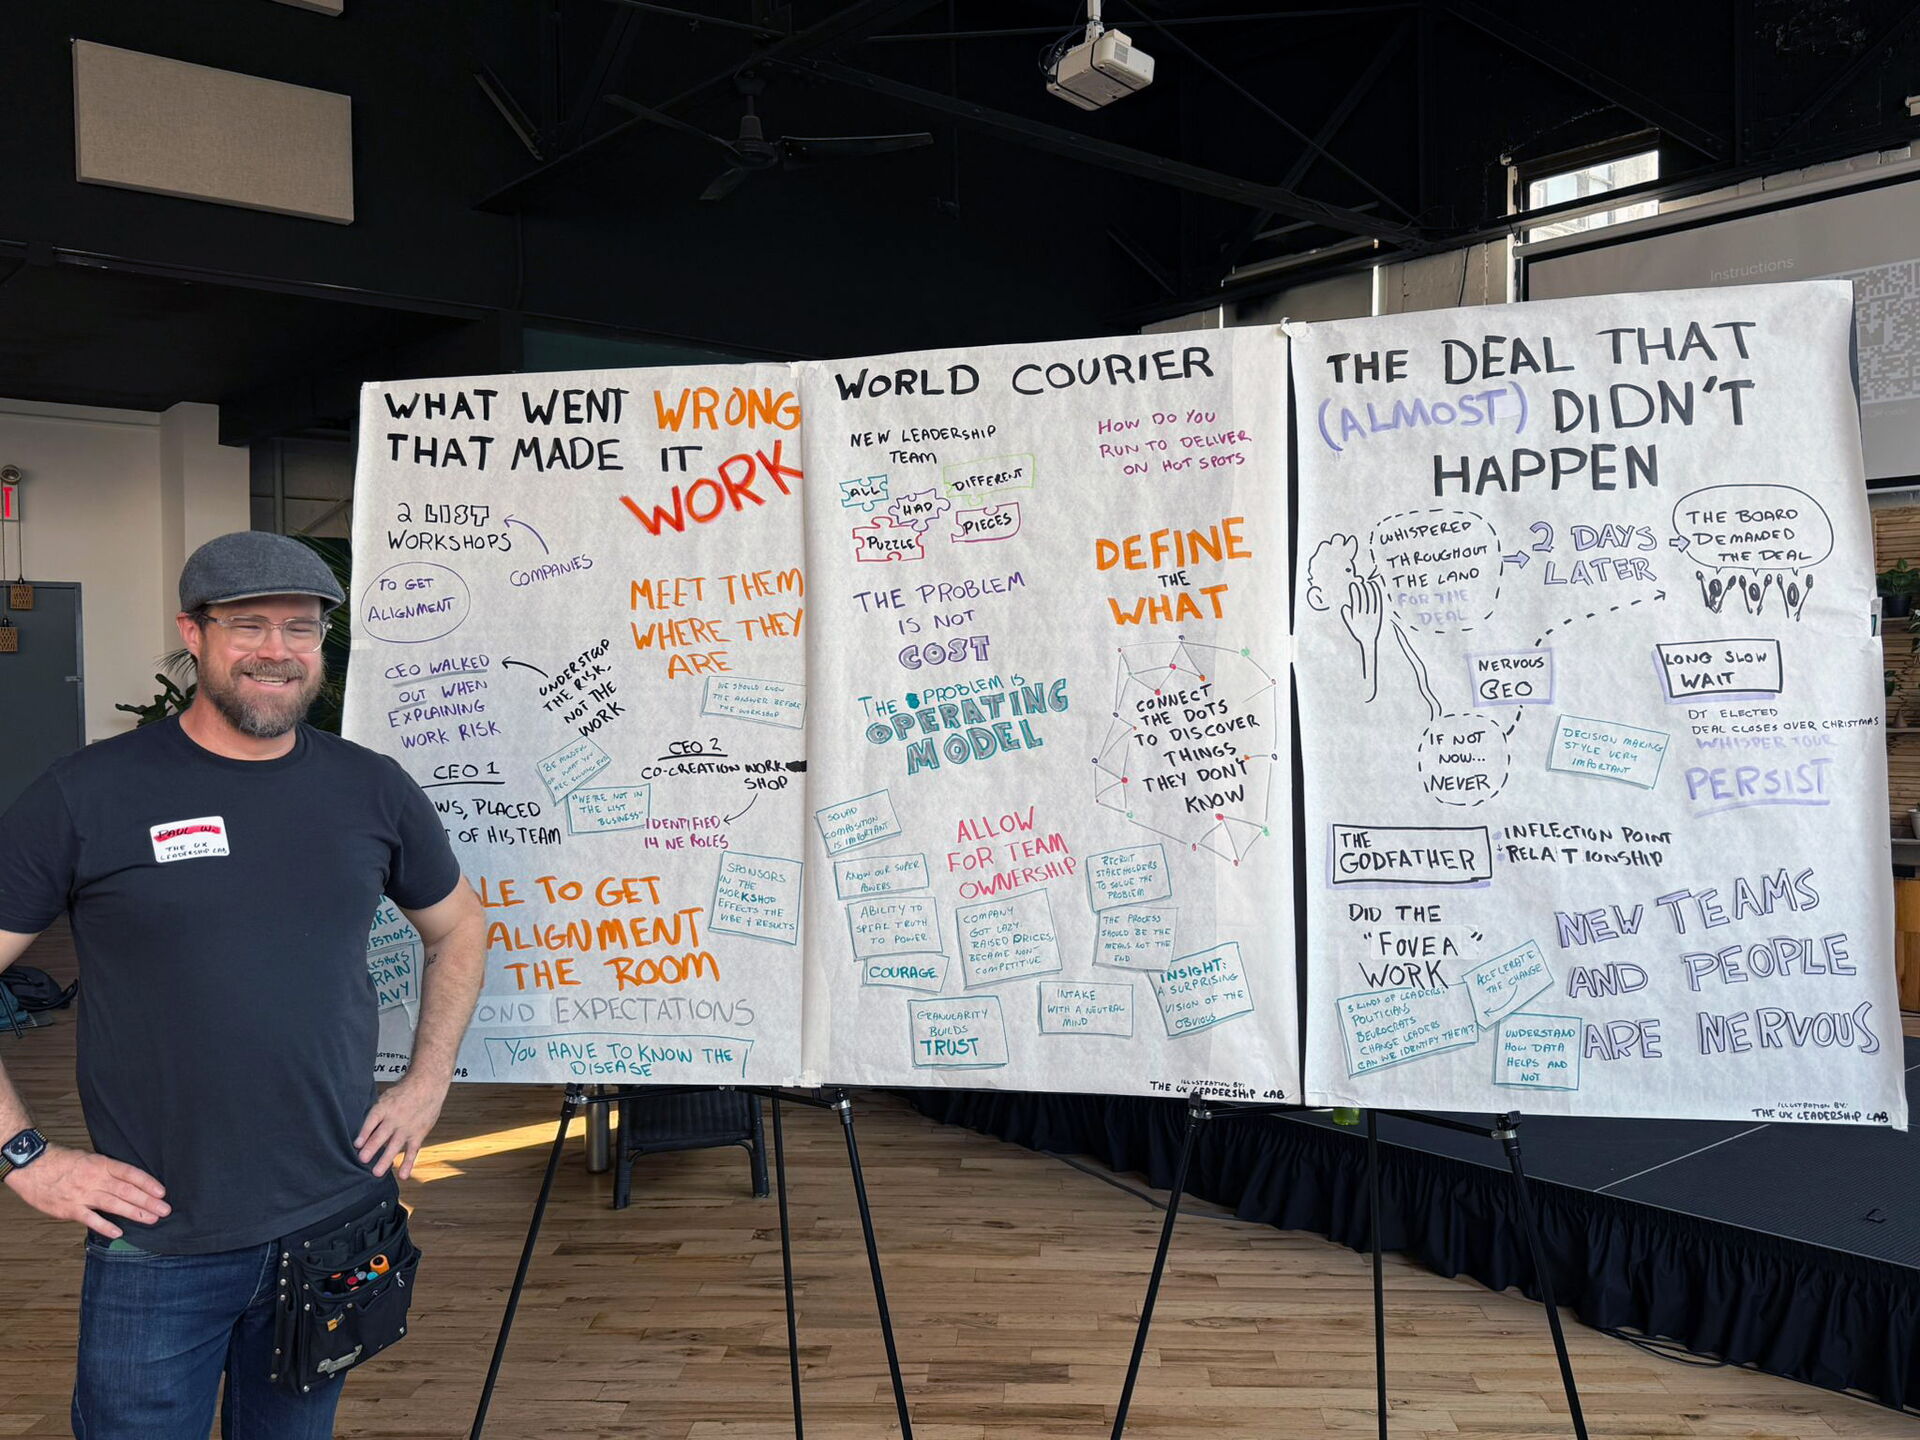 Instructions
PAUL W.
THE UX
LEADERSHIP LAB
WHAT WENT WRONG
THAT MADE IT
WORK
2 LIST
WORKSHOPS
COMPANIES
TO GET
ALIGNMENT
MEET THEM
WHERE THEY
ARE
CEO WALKED
OUT WHEN
EXPLAINING
WORK RISK
UNDERSTOOD
THE RISK,
NOT THE
WORK
WE SHOULD KNOW
THE ANSWER BEFORE
THE WORKSHOP
CEO 1
WS, PLACED
OF HIS TEAM
BE MINDFUL
OF WHAT YOU
ARE SOLVING FOR
"WE'RE NOT IN
THE LIST
BUSINESS"
CEO 2
CO-CREATION WORK
SHOP
IDENTIFIED
14 NE ROLES
SPONSORS
IN THE
WORKSHOP
EFFECTS THE
VIBE + RESULTS
LE TO GET
ALIGNMENT
THE ROOM
OND EXPECTATIONS
YOU HAVE TO KNOW THE
DISEASE
WORLD COURIER
NEW LEADERSHIP
TEAM
ALL
HAD
DIFFERENT
PUZZLE
PIECES
HOW DO YOU
RUN TO DELIVER
ON HOT SPOTS
THE PROBLEM
IS NOT
COST
THE PROBLEM IS
OPERATING
MODEL
DEFINE
THE
WHAT
CONNECT
THE DOTS
TO DISCOVER
THINGS
THEY DON'T
KNOW
SQUAD
COMPOSITION
IS IMPORTANT
KNOW OUR SUPER
POWERS
ABILITY TO
SPEAK TRUTH
TO POWER
COURAGE
ALLOW
FOR TEAM
OWNERSHIP
COMPANY
GOT LAZY
RAISED PRICES,
BECAME NON-
COMPETITIVE
GRANULARITY
BUILDS
TRUST
RECRUIT
STAKEHOLDERS
TO SOLVE THE
PROBLEM
THE PROCESS
SHOULD BE THE
MEANS NOT THE
END
INTAKE
WITH A NEUTRAL
MIND
INSIGHT:
A SURPRISING
VISION OF THE
OBVIOUS
ILLUSTRATION BY:
THE UX LEADERSHIP LAB
THE DEAL THAT
(ALMOST) DIDN'T
HAPPEN
WHISPERED
THROUGHOUT
THE LAND
FOR THE
DEAL
2 DAYS
LATER
THE BOARD
DEMANDED
THE DEAL
NERVOUS
CEO
IF NOT
NOW...
NEVER
LONG SLOW
WAIT
DT ELECTED
DEAL CLOSES OVER CHRISTMAS
WHISPER TOUR
PERSIST
DECISION MAKING
STYLE VERY
IMPORTANT
THE
GODFATHER
INFLECTION POINT
RELATIONSHIP
DID THE
"FOVEA"
WORK
5 KINDS OF LEADERS:
POLITICIANS
BEUROCRATS
CHANGE LEADERS
CAN WE IDENTIFY THEM?
ACCELERATE
THE CHANGE
UNDERSTAND
HOW DATA
HELPS AND
NOT
NEW TEAMS
AND PEOPLE
ARE NERVOUS
ILLUSTRATION BY:
THE UX LEADERSHIP LAB